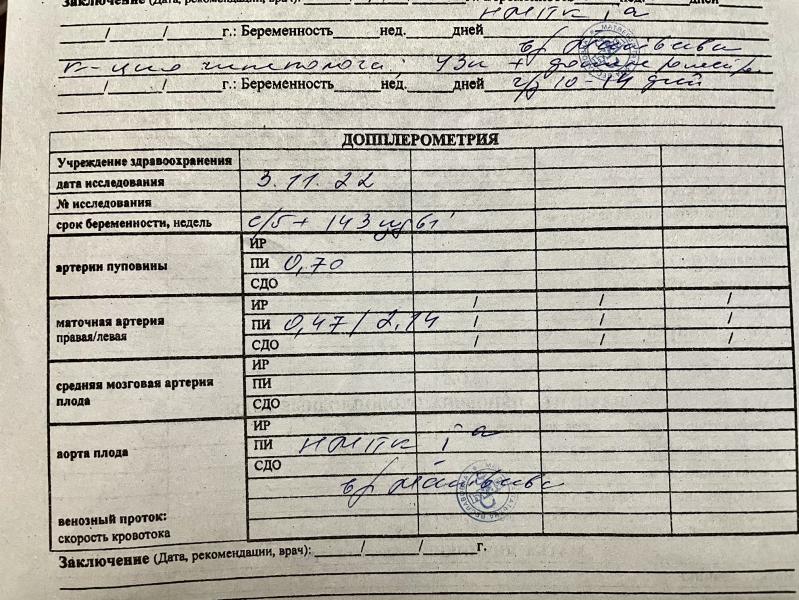 Заключение (Дата, рекомендации, врач):
НМПК Iа
/ / г.: Беременность нед. дней
вр
УЗИ +
/ / г.: Беременность нед. дней
ч/з 10-14 дней
ДОППЛЕРОМЕТРИЯ
Учреждение здравоохранения
дата исследования 3.11.22
№ исследования
срок беременности, недель с/б + 143 уд
артерии пуповины
ИР
ПИ 0,70
СДО
маточная артерия правая/левая
ИР / / /
ПИ 0,47 / 2,14 / / /
СДО / / /
средняя мозговая артерия плода
ИР
ПИ
СДО
аорта плода
ИР
ПИ НМПК Iа
СДО
вр
венозный проток:
скорость кровотока
Заключение (Дата, рекомендации, врач): / / г.